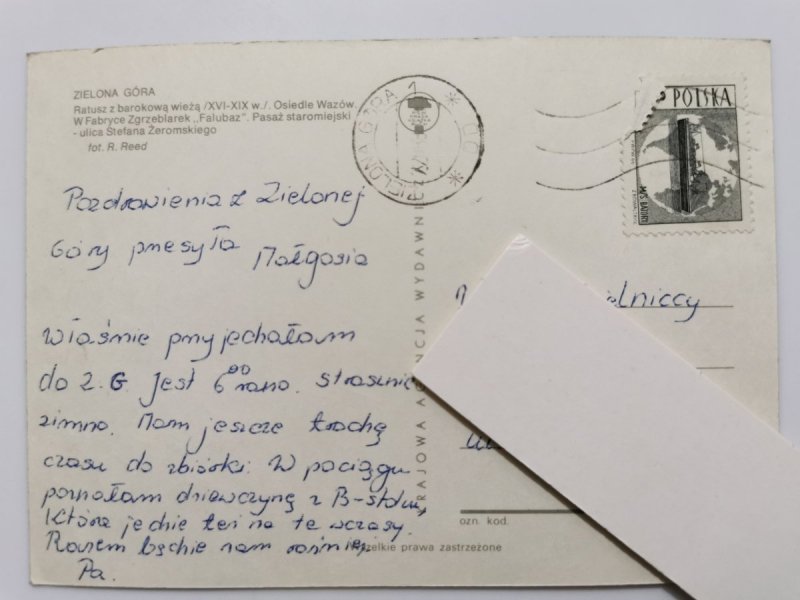 ZIELONA GÓRA
Ratusz z barokową wieżą /XVI-XIX w./. Osiedle Wazów.
W Fabryce Zgrzeblarek „Falubaz". Pasaż staromiejski
- ulica Stefana Żeromskiego
fot. R. Reed
ZIELONA GÓRA 1
POLSKA
M/S BATORY
Pozdrowienia z Zielonej
Góry przesyła Małgosia
Właśnie przyjechałam
do Z.G. Jest 6 00 rano. Strasznie
zimno. Mam jeszcze trochę
czasu do zbiórki. W pociągu
poznałam dziewczynę z B-stoku,
która jedzie też na te wczasy.
Razem będzie nam raźniej.
Pa.
KRAJOWA AGENCJA WYDAWNI
elniccy
ozn. kod.
Wszelkie prawa zastrzeżone